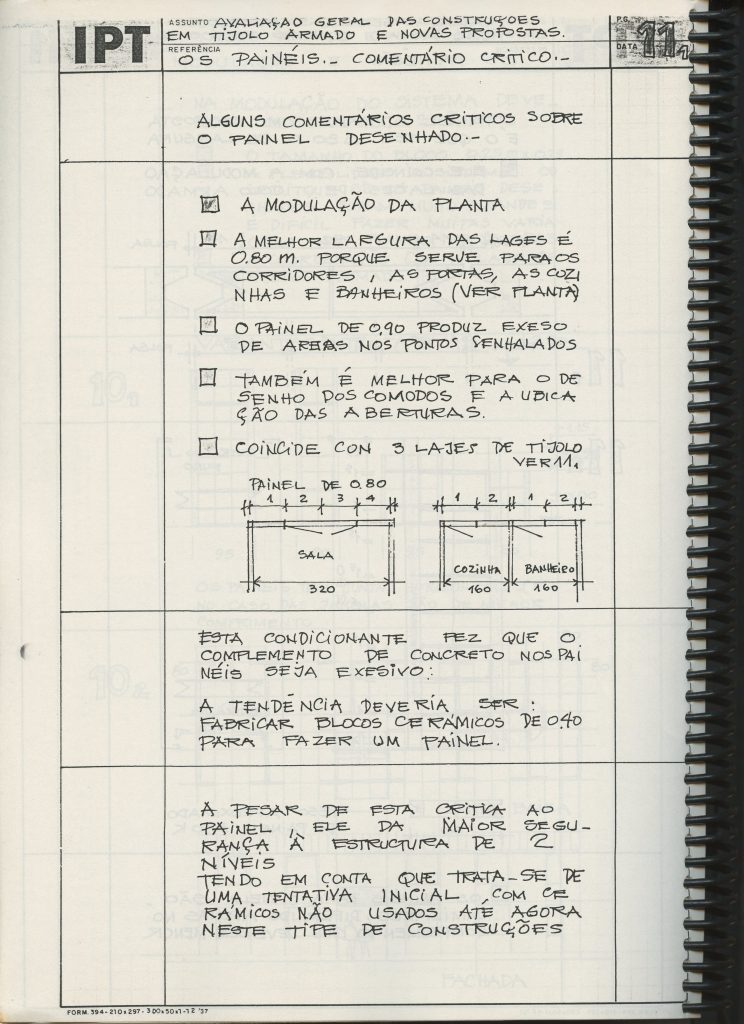 IPT
ASSUNTO AVALIAÇÃO GERAL DAS CONSTRUÇÕES
EM TIJOLO ARMADO E NOVAS PROPOSTAS.
REFERÊNCIA
OS PAINÉIS.- COMENTÁRIO CRITICO.-
PG.
DATA
11,
ALGUNS COMENTÁRIOS CRITICOS SOBRE
O PAINEL DESENHADO.-
A MODULAÇÃO DA PLANTA
A MELHOR LARGURA DAS LAGES É
0.80 m. PORQUE SERVE PARA OS
CORRIDORES, AS PORTAS, AS COZI
NHAS E BANHEIROS (VER PLANTA)
O PAINEL DE 0,90 PRODUZ EXESO
DE AREAS NOS PONTOS SENHALADOS
TAMBÉM É MELHOR PARA O DE
SENHO DOS COMODOS E A UBICA
ÇÃO DAS ABERTURAS.
COINCIDE CON 3 LAJES DE TIJOLO
VER 11.
PAINEL DE 0.80
1 2 3 4 1 2 1 2
SALA COZINHA BANHEIRO
320 160 160
ESTA CONDICIONANTE FEZ QUE O
COMPLEMENTO DE CONCRETO NOS PAI
NÉIS SEJA EXESIVO:
A TENDÊNCIA DEVERIA SER:
FABRICAR BLOCOS CERÁMICOS DE 0.40
PARA FAZER UM PAINEL.
A PESAR DE ESTA CRITICA AO
PAINEL, ELE DA MAIOR SEGU-
RANÇA À ESTRUCTURA DE 2
NÍVEIS
TENDO EM CONTA QUE TRATA-SE DE
UMA TENTATIVA INICIAL, COM CE
RÁMICOS NÃO USADOS ATÉ AGORA
NESTE TIPE DE CONSTRUÇÕES
FORM. 394-210x297-300x50x1-12'37